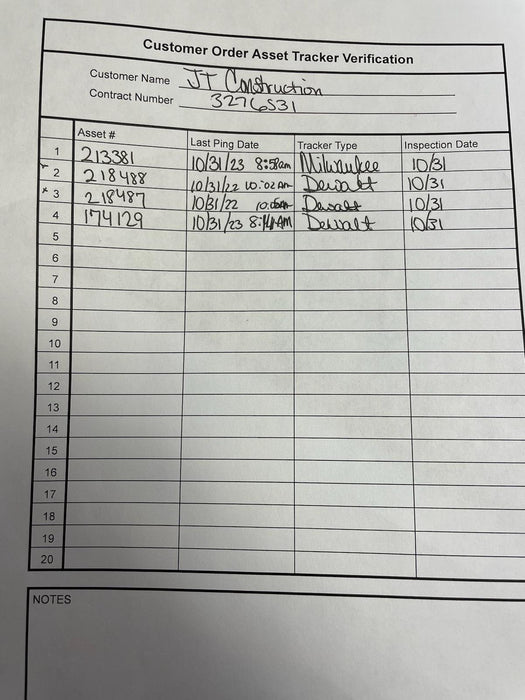 Customer Order Asset Tracker Verification
Customer Name JT Construction
Contract Number 3276531
Asset # Last Ping Date Tracker Type Inspection Date
1 213381 10/31/23 8:58am Milwaukee 10/31
2 218488 10/31/22 10:02 Am Dewalt 10/31
* 3 218487 10/31/22 Dewalt 10/31
4 174129 10/31/23 Dewalt 10/31
5
6
7
8
9
10
11
12
13
14
15
16
17
18
19
20
NOTES